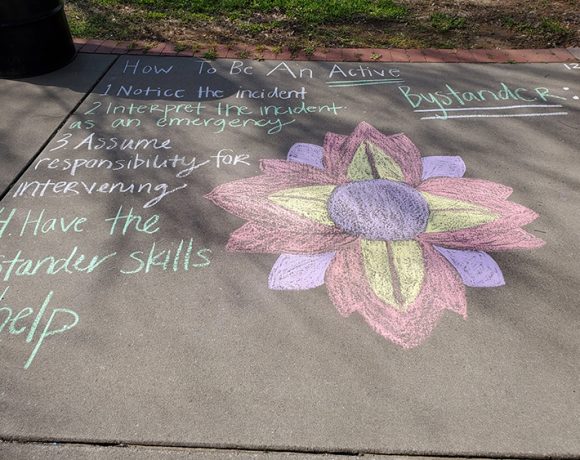 How To Be An Active
Bystander:
1 Notice the incident
2 Interpret the incident
as an emergency
3 Assume
responsibility for
intervening
4. Have the
stander skills
help